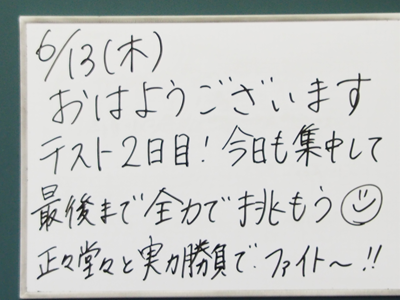 6/13(木)
おはようございます
テスト2日目!今日も集中して
最後まで全力で挑もう☺
正々堂々と実力勝負で.ファイト〜!!